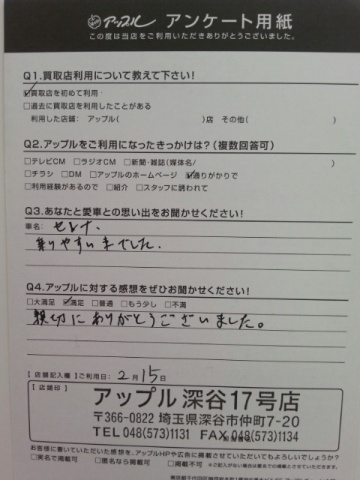 アップル アンケート用紙
この度は当店をご利用いただきありがとうございました。
Q1.買取店利用について教えて下さい!
☑買取店を初めて利用
□過去に買取店を利用したことがある
利用した店舗: アップル( )店 その他( )
Q2.アップルをご利用になったきっかけは?(複数回答可)
□テレビCM □ラジオCM □新聞・雑誌(媒体名/ )
□チラシ □DM □アップルのホームページ ☑通りがかりで
□利用経験があるので □紹介 □スタッフに誘われて
Q3.あなたと愛車との思い出をお聞かせください!
車名: セレナ
乗りやすいまでした。
Q4.アップルに対する感想をぜひお聞かせください!
□大満足 ☑満足 □普通 □もう少し □不満
親切にありがとうございました。
【店舗記入欄】ご利用日: 2月15日
【店舗印】
アップル 深谷17号店
〒366-0822 埼玉県深谷市仲町7-20
TEL 048(573)1131 FAX 048(573)1134
お客様に書いていただいた感想を、アップルHPや広告に掲載させていただいてもよろしいでしょうか?
□実名で掲載可 □匿名なら掲載可 □掲載不可